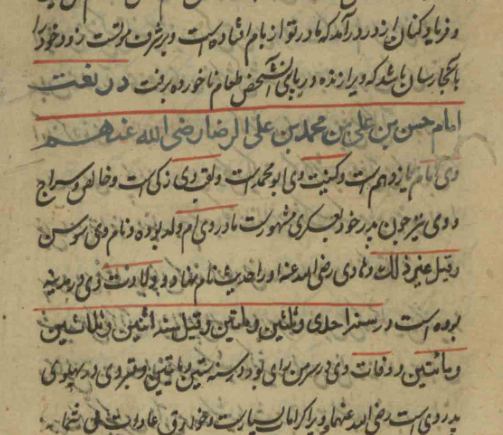 و فریاد کنان از در درآمد که مادر تو از بام افتاده است و بر شرف موتست زود خود را
بانجا رسان باشد که ویرا زنده دریابی آن شخص طعام ناخورده برفت در نعت
امام حسن بن علی بن محمد بن علی الرضا رضی الله عنهم
وی امام یازدهم است و کنیت وی ابو محمد است و لقب وی زکی است و خالص و سراج
و وی نیز چون پدر خود بعسکری مشهور است مادر وی ام ولد بوده و نام وی سوسن
و قیل غیر ذلک و هادی رضی الله عنه او را حدیث نام نهاد و ولادت وی در مدینه
بوده است در سنه احدی و ثلثین و مائتین و قیل سنه اثنین و ثلاثین
و مائتین و وفات وی در سر من رای بود در سنه ستین و مائتین و قبر وی در پهلوی
پدر وی است رضی الله عنهما و ویرا کرامات بسیار است و خوارق عادات بی شمار